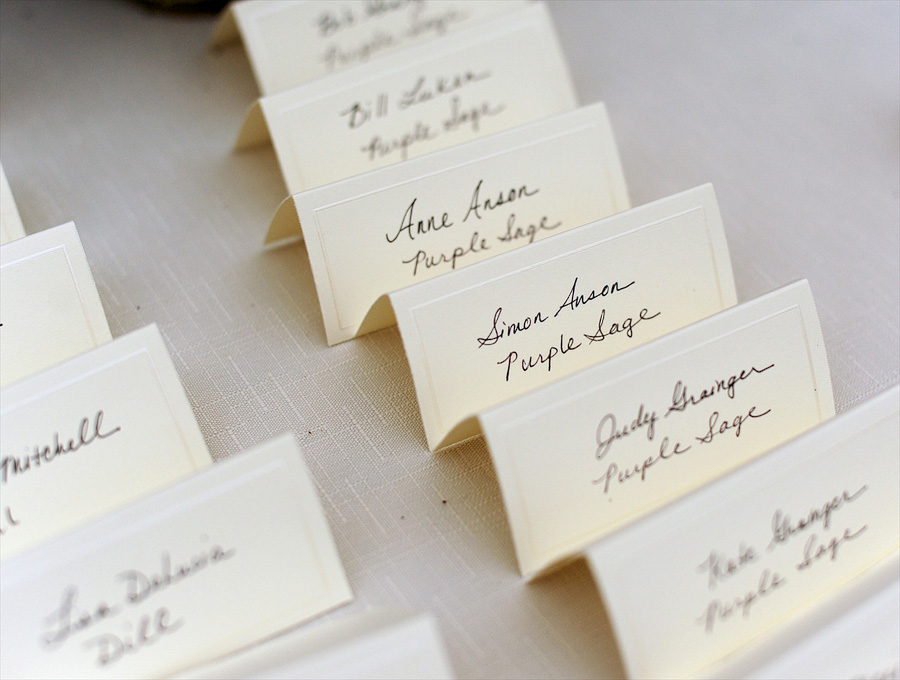 Purple Sage
Bill Luker
Purple Sage
Anne Anson
Purple Sage
Simon Anson
Purple Sage
Judy Grainger
Purple Sage
Kate Grainger
Purple Sage
Mitchell
Dill